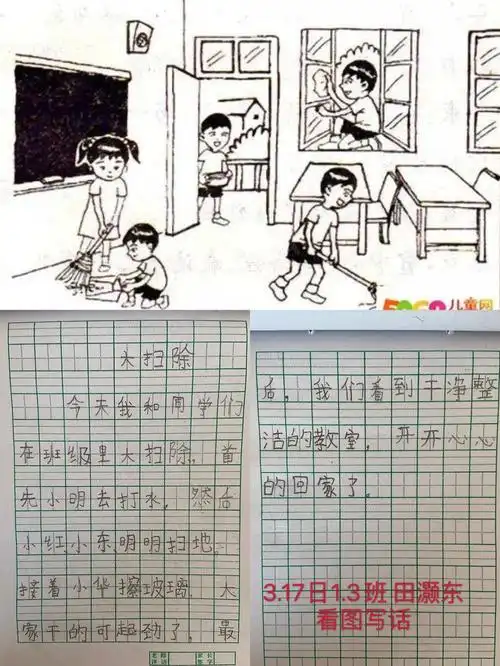 儿童网
大扫除
今天我和同学们
在班级里大扫除。首
先小明去打水。然后
小红、小东、明明扫地。
接着小华擦玻璃。大
家干的可起劲了。最
后，我们看到干净整
洁的教室，开开心心
的回家了。
3.17日1.3班田灏东
看图写话